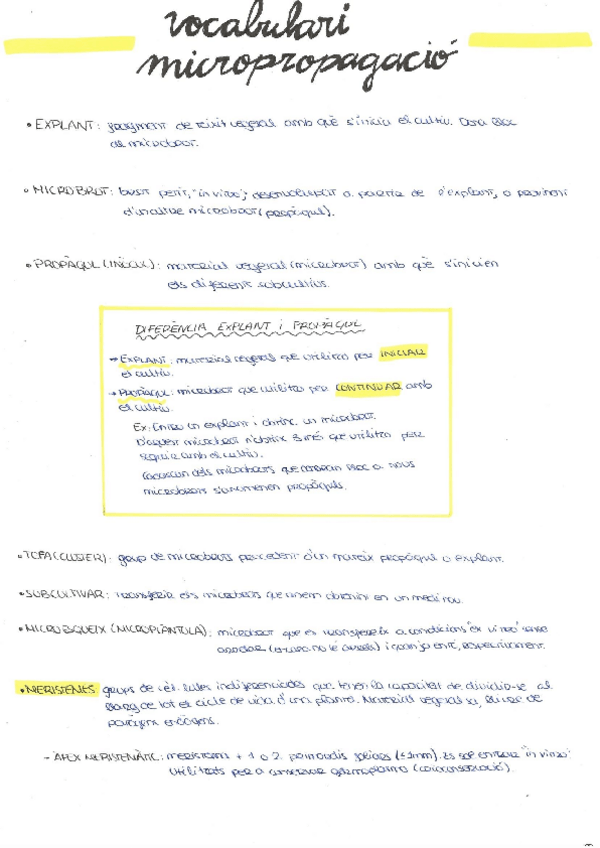 vocabulari
micropropagació
• EXPLANT: fragment de teixit vegetal amb què s'inicia el cultiu. Dona lloc
al microbrot.
• MICROBROT: brot petit, "in vitro", desenvolupat a partir de l'explant, o provinent
d'un altre microbrot (propàgul).
• PROPÀGUL (INÒCUL): material vegetal (microbrot) amb què s'inicien
els diferents subcultius.
DIFERÈNCIA EXPLANT i PROPÀGUL
→ EXPLANT: material vegetal que utilitzo per INICIAR
el cultiu.
→ PROPÀGUL: microbrot que utilitzo per CONTINUAR amb
el cultiu.
Ex: Entro un explant i obtinc un microbrot.
D'aquest microbrot n'obtinc 3 més que utilitzo per
seguir amb el cultiu.
Cascun dels microbrots que donaran lloc a nous
microbrots s'anomenen propàguls.
• TOFA (CLUSTER): grup de microbrots procedent d'un mateix propàgul o explant.
• SUBCULTIVAR: transferir els microbrots que anem obtenint en un medi nou.
• MICROESQUEIX (MICROPLÀNTULA): microbrot que es transfereix a condicions "ex vitro" sense
arrelar (encara no té arrels) i quan ja en té, respectivament.
• MERISTEMES: grups de cèl·lules indiferenciades que tenen la capacitat de dividir-se al
llarg de tot el cicle de vida d'una planta. Material vegetal sa, lliure de
patògens endògens.
- ÀPEX MERISTEMÀTIC: meristem + 1 o 2 primordis foliars (≤1mm). Es sol entrar "in vitro"
Utilitzats per a conservar germoplasma (crioconservació).